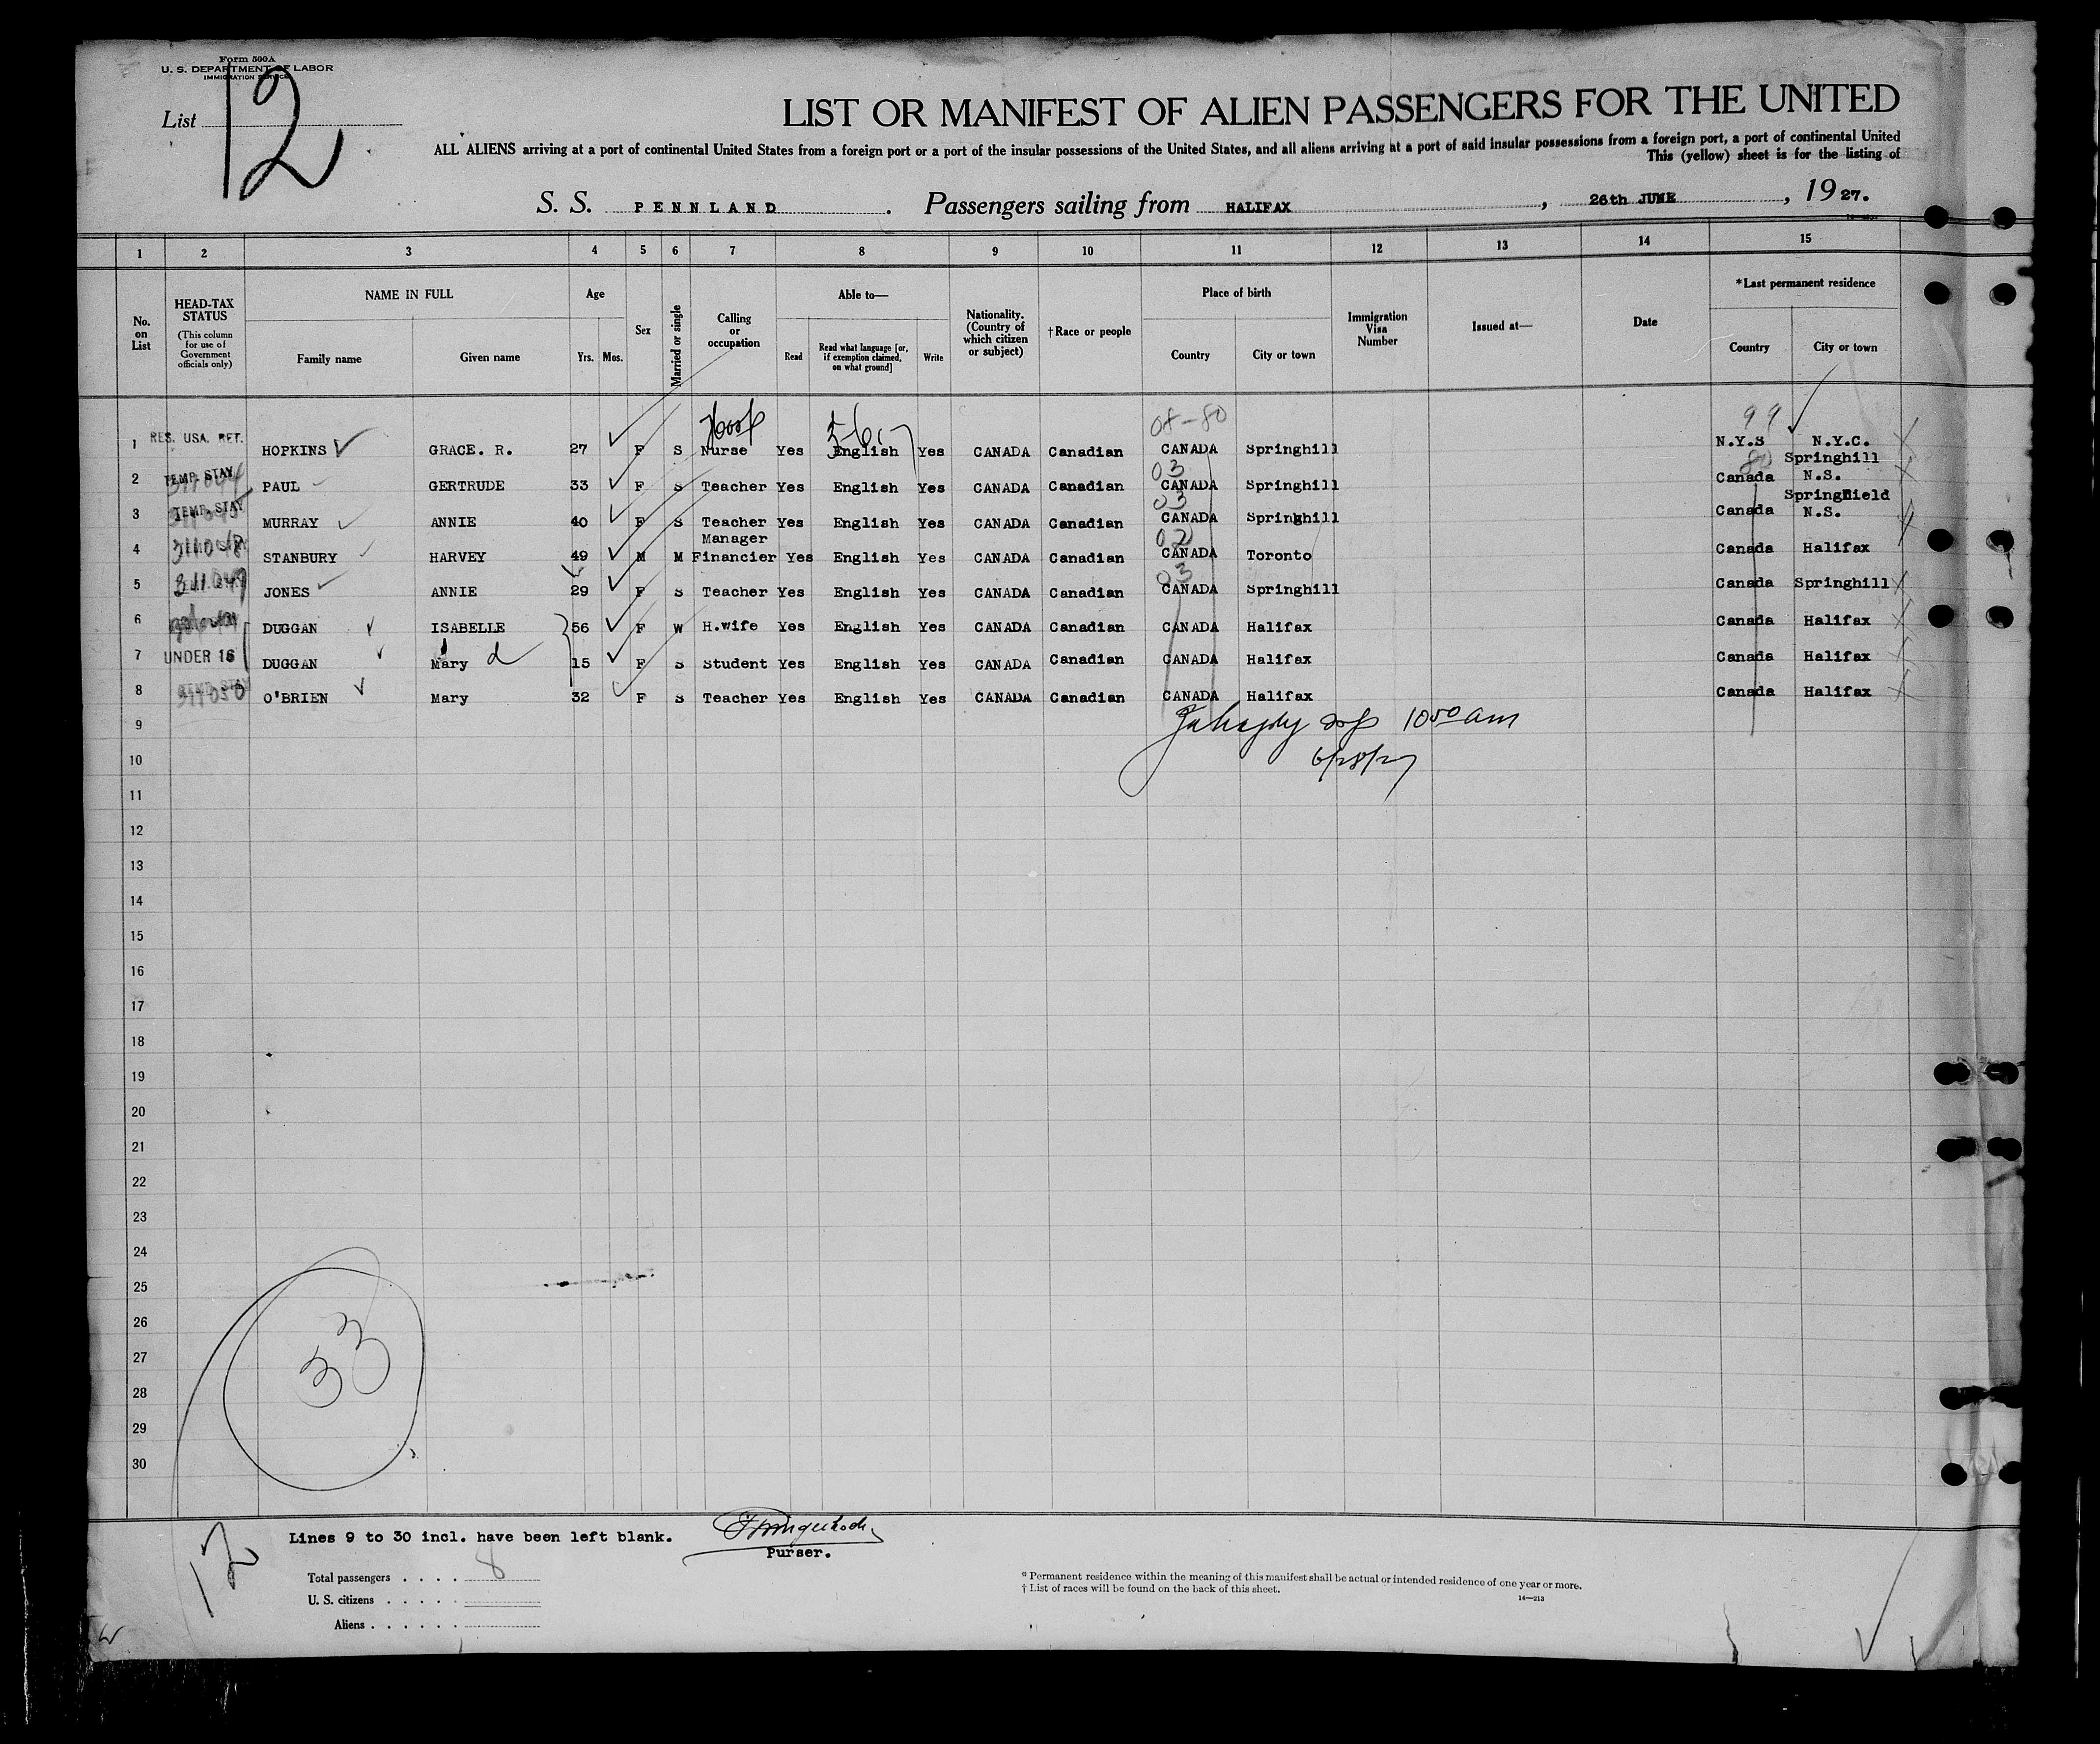 Form 500A
U. S. DEPARTMENT OF LABOR
IMMIGRATION SERVICE
List 12
LIST OR MANIFEST OF ALIEN PASSENGERS FOR THE UNITED
ALL ALIENS arriving at a port of continental United States from a foreign port or a port of the insular possessions of the United States, and all aliens arriving at a port of said insular possessions from a foreign port, a port of continental United
This (yellow) sheet is for the listing of
S. S. PENNLAND . Passengers sailing from HALIFAX , 26th JUNE , 19 27.
1 2 3 4 5 6 7 8 9 10 11 12 13 14 15
No. on List
HEAD-TAX STATUS
(This column for use of Government officials only)
NAME IN FULL
Family name Given name
Age
Yrs. Mos.
Sex
Married or single
Calling or occupation
Able to—
Read
Read what language [or, if exemption claimed, on what ground]
Write
Nationality. (Country of which citizen or subject)
†Race or people
Place of birth
Country City or town
Immigration Visa Number
Issued at—
Date
*Last permanent residence
Country City or town
08-80 99
1 RES. USA. RET. HOPKINS GRACE. R. 27 F S Nurse Yes English Yes CANADA Canadian CANADA Springhill N.Y.S N.Y.C.
03 80
2 TEMP. STAY PAUL GERTRUDE 33 F S Teacher Yes English Yes CANADA Canadian CANADA Springhill Canada Springhill N.S.
03
3 TEMP. STAY MURRAY ANNIE 40 F S Teacher Yes English Yes CANADA Canadian CANADA Springhill Canada Springfield N.S.
02
4 STANBURY HARVEY 49 M M Manager Financier Yes English Yes CANADA Canadian CANADA Toronto Canada Halifax
03
5 JONES ANNIE 29 F S Teacher Yes English Yes CANADA Canadian CANADA Springhill Canada Springhill
6 DUGGAN ISABELLE 56 F W H.wife Yes English Yes CANADA Canadian CANADA Halifax Canada Halifax
7 UNDER 16 DUGGAN Mary d 15 F S Student Yes English Yes CANADA Canadian CANADA Halifax Canada Halifax
8 O'BRIEN Mary 32 F S Teacher Yes English Yes CANADA Canadian CANADA Halifax Canada Halifax
9 1050 am
10 6/28/27
11
12
13
14
15
16
17
18
19
20
21
22
23
24
25
26
27
28
29
30
33
12
Lines 9 to 30 incl. have been left blank.
Purser.
Total passengers . . . . 8
U. S. citizens . . . . .
Aliens . . . . . .
* Permanent residence within the meaning of this manifest shall be actual or intended residence of one year or more.
† List of races will be found on the back of this sheet.
14—213